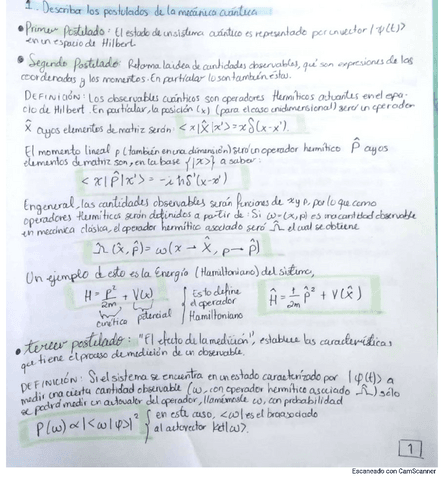 1. Describir los postulados de la mecánica cuántica
• Primer Postulado: El estado de un sistema cuántico es representado por un vector |ψ(t)>
en un espacio de Hilbert.
• Segundo Postulado: Reforma la idea de cantidades observables, qué son expresiones de las
coordenadas y los momentos. En particular lo son también éstas.
DEFINICIÓN: Los observables cuánticos son operadores Hermíticos actuantes en el espa-
cio de Hilbert. En particular, la posición (x) (para el caso unidimensional) será un operador
X̂ cuyos elementos de matriz serán: <x|X̂|x'> = xδ(x-x').
El momento lineal p (también en una dimensión) será un operador hermítico P̂ cuyos
elementos de matriz son, en la base {|x>} a saber:
<x|P̂|x'> = -iħδ'(x-x')
En general, las cantidades observables serán funciones de x y p, por lo que como
operadores Hermíticos serán definidos a partir de: Si ω=(x,p) es una cantidad observable
en mecánica clásica, el operador hermítico asociado será Ω̂ el cual se obtiene
Ω̂(x̂,p̂) = ω(x→X̂, p→P̂)
Un ejemplo de esto es la Energía (Hamiltoniano) del sistema,
H = P²/2m + V(x) { Esto define el operador Hamiltoniano Ĥ = 1/2m P̂² + V(X̂)
cinética potencial
• tercer postulado: "El efecto de la medición", establece las características
que tiene el proceso de medición de un observable.
DEFINICIÓN: Si el sistema se encuentra en un estado caracterizado por |φ(t)> a
medir una cierta cantidad observable (ω, con operador hermítico asociado Ω̂) sólo
se podrá medir un autovalor del operador, llamémosle ω, con probabilidad
P(ω) ∝ |<ω|φ>|² { en este caso, <ω| es el bra asociado
al autovector ket |ω>.
1
Escaneado con CamScanner